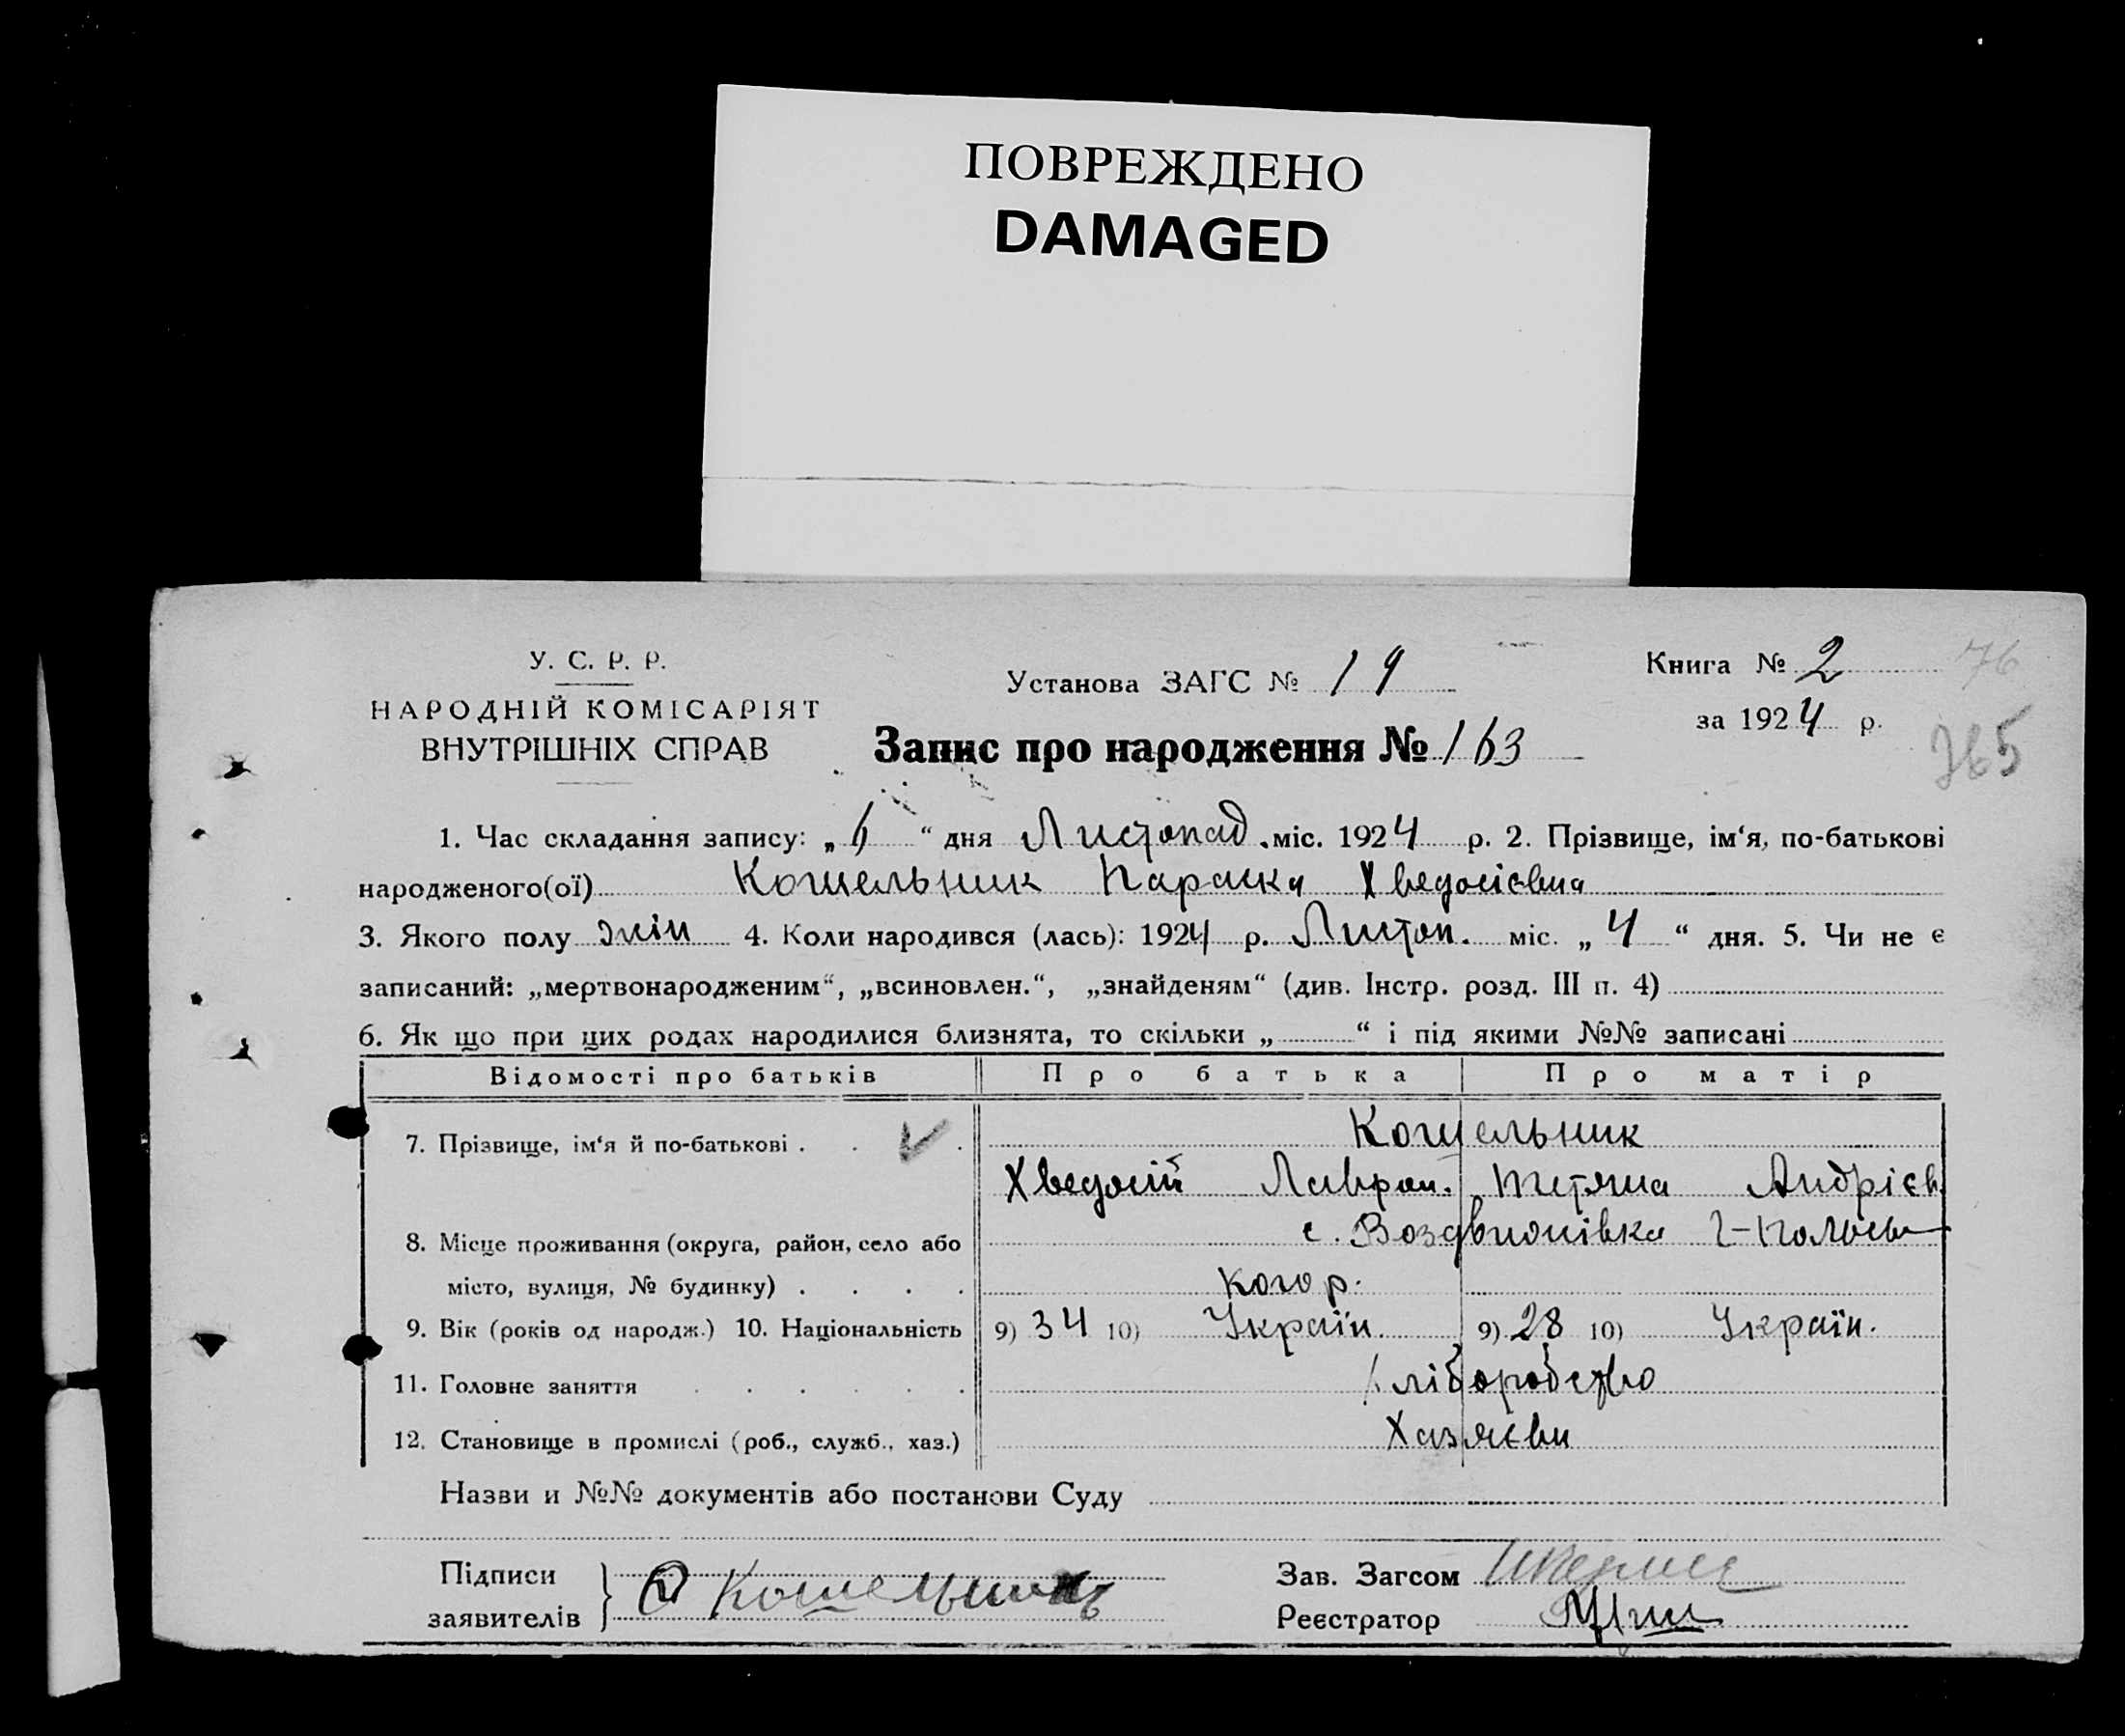 ПОВРЕЖДЕНО
DAMAGED
У. С. Р. Р.
НАРОДНІЙ КОМІСАРІЯТ
ВНУТРІШНІХ СПРАВ
Установа ЗАГС № 19
Запис про народження № 163
Книга № 2
за 1924 р.
76
265
1. Час складання запису: „ 6 “ дня Листопад. міс. 1924 р. 2. Прізвище, ім‘я, по-батькові
народженого(ої) Кошельник Параска Хведосієвна
3. Якого полу жін 4. Коли народився (лась): 1924 р. Листоп. міс. „ 4 “ дня. 5. Чи не є
записаний: „мертвонародженим“, „всиновлен.“, „знайденям“ (див. Інстр. розд. III п. 4)
6. Як що при цих родах народилися близнята, то скільки „ “ і під якими №№ записані
Відомості про батьків Про батька Про матір
7. Прізвище, ім‘я й по-батькові . . . Кошельник
Хведосій Лаврон. Тетяна Андрієв.
8. Місце проживання (округа, район, село або с. Воздвижнівка Г-Польсь
місто, вулиця, № будинку) . . . . кого р.
9. Вік (років од народж.) 10. Національність 9) 34 10) Україн. 9) 28 10) Україн.
11. Головне заняття . . . . . . Хліборобство
12. Становище в промислі (роб., служб., хаз.) Хазяєви
Назви и №№ документів або постанови Суду
Підписи
заявителів } Кошельникъ
Зав. Загсом
Реєстратор